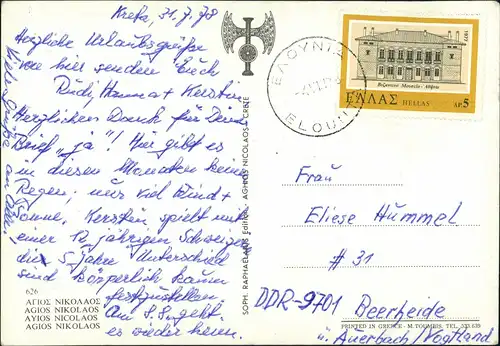 Kreta, 31.7.78
Herzliche Urlaubsgrüße
von hier senden Euch
Rudi, Hanna + Kerstin
Herzlichen Dank für Deinen
Brief "ja"! Hier gibt es
in diesen Monaten keinen
Regen; nur viel Wind +
Sonne. Kersten spielt mit
einer 12 jährigen Schweizerin
die 5 Jahre Unterschied
sind körperlich kaum
festzustellen.
Am 5.8. geht
es wieder heim.
Viele Grüße an Alle!
626
ΑΓΙΟΣ ΝΙΚΟΛΑΟΣ
AGIOS NIKOLAOS
AYIOS NICOLAOS
AGIOS NIKOLAOS
SOPH. RAPHAELAKIS Editor - AGHIOS NICOLAOS - CRETE
ΕΛΟΥΝΤΑ
ELOUNTA
1977
Βυζαντινό Μουσείο - Ἀθῆναι
ΕΛΛΑΣ HELLAS ΔΡ. 5
Frau
Eliese Hummel
# 31
DDR-9701 Beerheide
ü. Auerbach/Vogtland
PRINTED IN GREECE - M. TOUMBIS, TEL.